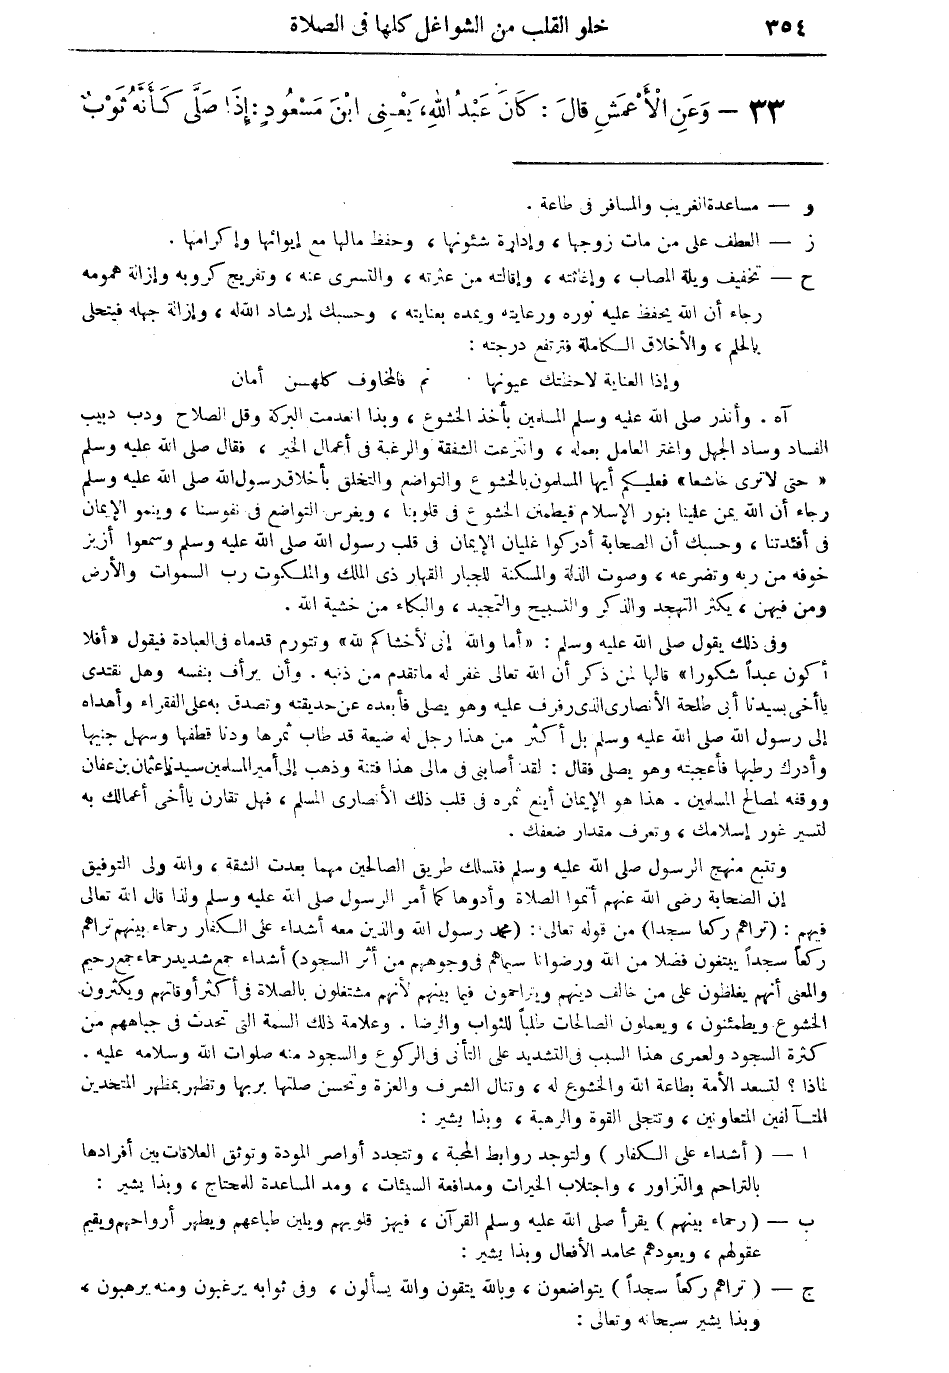 ٣٥٤ خلو القلب من الشواغل كلها فى الصلاة
٣٣ — وَعَنِ الْأَعْمَشِ قَالَ : كَانَ عَبْدُ اللهِ، يَعْنِى ابْنَ مَسْعُودٍ : إِذَا صَلَّى كَأَنَّهُ ثَوْبٌ
و — مساعدة الغريب والمسافر فى طاعة .
ز — العطف على من مات زوجها ، وإدارة شئونها ، وحفظ مالها مع إيوائها وإكرامها .
ح — تخفيف ويلة المصاب ، وإغاثته ، وإقالته من عثرته ، والتسرى عنه ، وتفريج كروبه وإزالة همومه
رجاء أن الله يحفظ عليه نوره ورعايته ويمده بعنايته ، وحسبك إرشاد الله له ، وإزالة جهله فيتحلى
بالحلم ، والأخلاق الكاملة فترتفع درجته :
وإذا العناية لاحظتك عيونها نم فالمخاوف كلهن أمان
آه . وأنذر صلى الله عليه وسلم المسلمين بأخذ الخشوع ، وبذا انعدمت البركة وقل الصلاح ودب دبيب
الفساد وساد الجهل واغتر العامل بعمله ، وانتزعت الشفقة والرغبة فى أعمال الخير ، فقال صلى الله عليه وسلم
« حتى لا ترى خاشعا » فعليكم أيها المسلمون بالخشوع والتواضع والتخلق بأخلاق رسول الله صلى الله عليه وسلم
رجاء أن الله يمن علينا بنور الإسلام فيطمئن الخشوع فى قلوبنا ، ويغرس التواضع فى نفوسنا ، وينمو الإيمان
فى أفئدتنا ، وحسبك أن الصحابة أدركوا غليان الإيمان فى قلب رسول الله صلى الله عليه وسلم وسمعوا أزيز
خوفه من ربه وتضرعه ، وصوت الذلة والمسكنة للجبار القهار ذى الملك والملكوت رب السموات والأرض
ومن فيهن ، يكثر التهجد والذكر والتسبيح والتمجيد ، والبكاء من خشية الله .
وفى ذلك يقول صلى الله عليه وسلم : « أما والله إنى لأخشاكم لله » وتتورم قدماه فى العبادة فيقول « أفلا
أكون عبداً شكورا » قالها لمن ذكر أن الله تعالى غفر له ما تقدم من ذنبه . وأن يرأف بنفسه وهل نقتدى
يا أخى بسيدنا أبى طلحة الأنصارى الذى رفرف عليه وهو يصلى فأبعده عن حديقته وتصدق به على الفقراء وأهداه
إلى رسول الله صلى الله عليه وسلم بل أكثر من هذا رجل له ضيعة قد طاب ثمرها ودنا قطفها وسهل جنيها
وأدرك رطبها فأعجبته وهو يصلى فقال : لقد أصابنى فى مالى هذا فتنة وذهب إلى أمير المسلمين سيدنا عثمان بن عفان
ووقفه لمصالح المسلمين . هذا هو الإيمان أينع ثمره فى قلب ذلك الأنصارى المسلم ، فهل تقارن يا أخى أعمالك به
لتسير غور إسلامك ، وتعرف مقدار ضعفك .
وتتبع منهج الرسول صلى الله عليه وسلم فتسلك طريق الصالحين مهما بعدت الشقة ، والله ولى التوفيق
إن الصحابة رضى الله عنهم أتموا الصلاة وأدوها كما أمر الرسول صلى الله عليه وسلم ولذا قال الله تعالى
فيهم : (تراهم ركعا سجدا) من قوله تعالى : (محمد رسول الله والذين معه أشداء على الكفار رحماء بينهم تراهم
ركعاً سجداً يبتغون فضلا من الله ورضوانا سيماهم فى وجوههم من أثر السجود) أشداء جمع شديد رحماء جمع رحيم
والمعنى أنهم يغلظون على من خالف دينهم ويتراحمون فيما بينهم لأنهم مشتغلون بالصلاة فى أكثر أوقاتهم ويكثرون
الخشوع ويطمئنون ، ويعملون الصالحات طلباً للثواب والرضا . وعلامة ذلك السمة التى تحدث فى جباههم من
كثرة السجود ولعمرى هذا السبب فى التشديد على التأنى فى الركوع والسجود منه صلوات الله وسلامه عليه .
لماذا ؟ لتسعد الأمة بطاعة الله والخشوع له ، وتنال الشرف والعزة وتحسن صلتها بربها وتظهر بمظهر المتحدين
المتآلفين المتعاونين ، وتتجلى القوة والرهبة ، وبذا يشير :
ا — ( أشداء على الكفار ) ولتوجد روابط المحبة ، وتتجدد أواصر المودة وتوثق العلاقات بين أفرادها
بالتراحم والتزاور ، واجتلاب الخيرات ومدافعة السيئات ، ومد المساعدة للمحتاج ، وبذا يشير :
ب — ( رحماء بينهم ) يقرأ صلى الله عليه وسلم القرآن ، فيهز قلوبهم ويلين طباعهم ويطهر أرواحهم ويقيم
عقولهم ، ويعودهم محامد الأفعال وبذا يشير :
ج — ( تراهم ركعاً سجداً ) يتواضعون ، وبالله يتقون والله يسألون ، وفى ثوابه يرغبون ومنه يرهبون ،
وبذا يشير سبحانه وتعالى :